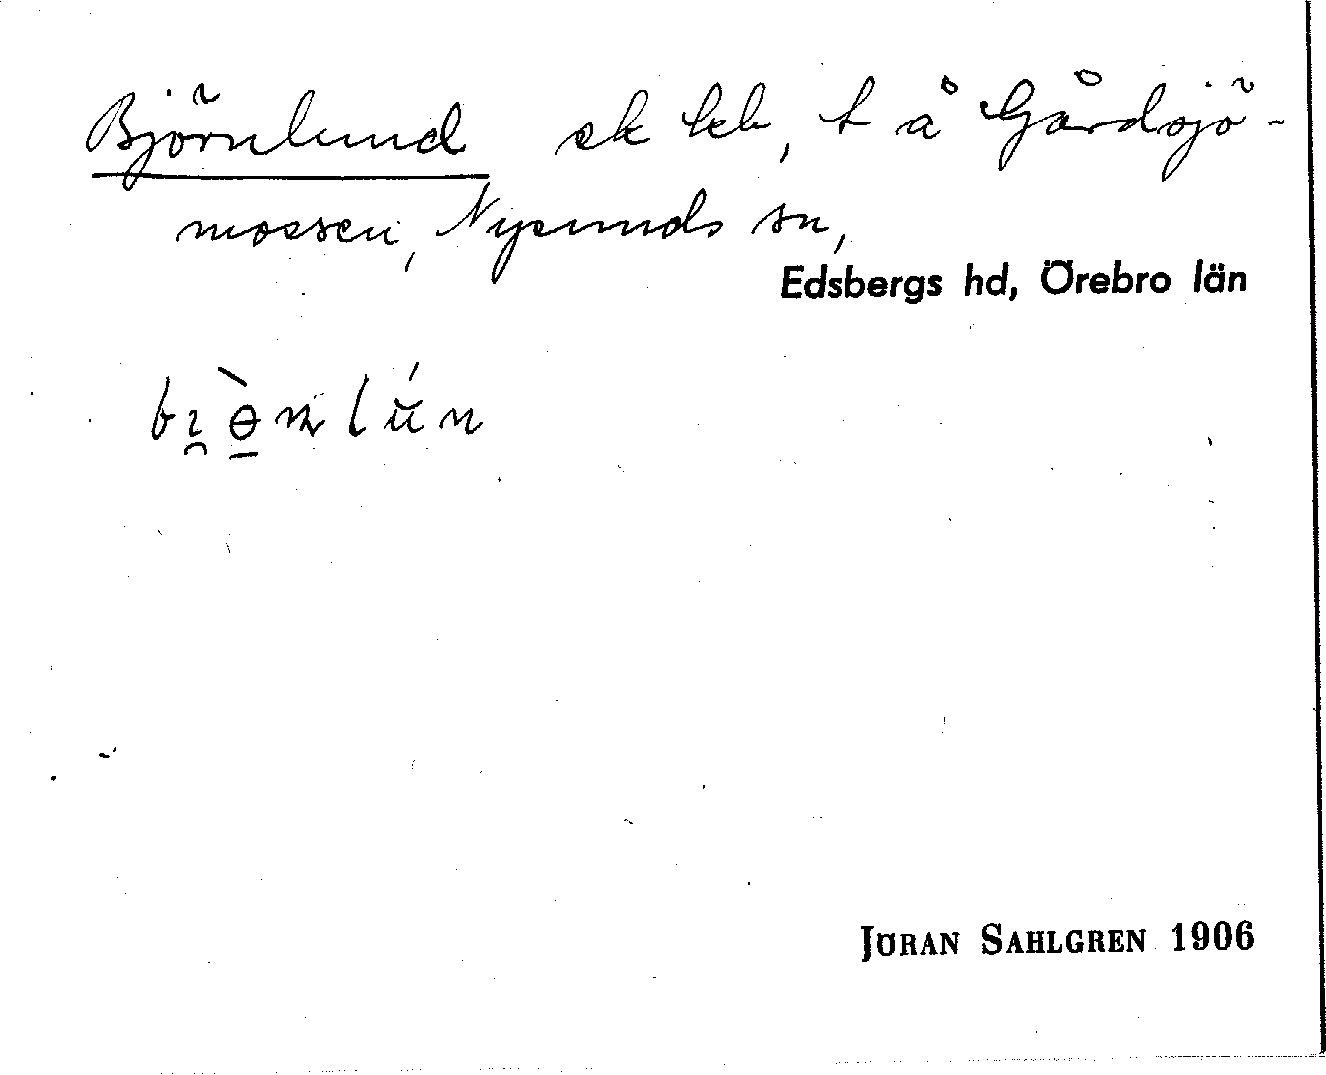 Björnlund sk lzh, t å Gårdsjö-
mossen, Nysunds sn,
Edsbergs hd, Örebro län
JÖRAN SAHLGREN 1906